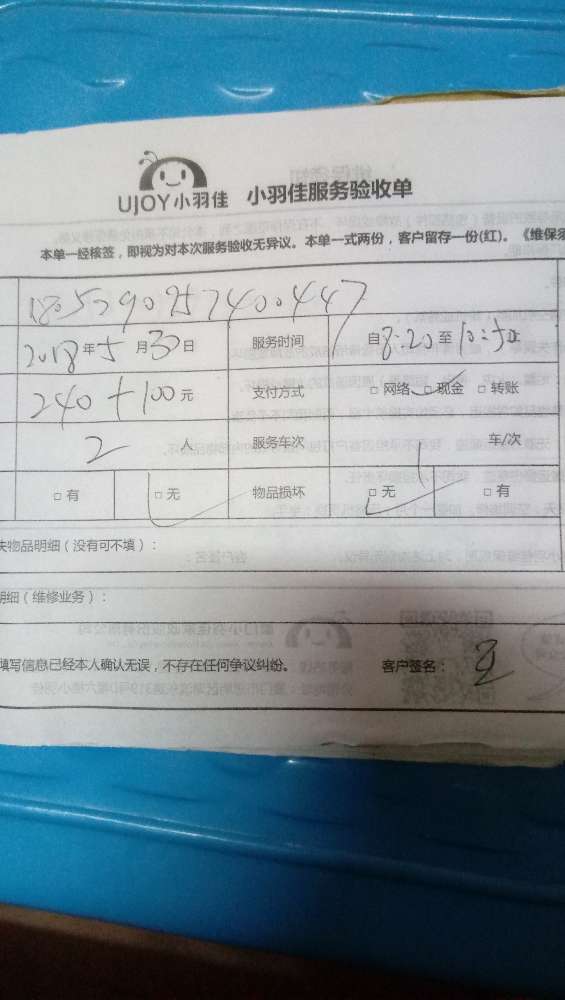 UJOY小羽佳 小羽佳服务验收单
本单一经核签，即视为对本次服务验收无异议。本单一式两份，客户留存一份(红)。《维保须
1805290257400447
2018年5月30日 服务时间 自8:20至10:50止
240+100元 支付方式 □网络 □现金 □转账
2人 服务车次 1车/次
□有 □无 物品损坏 □无 □有
失物品明细（没有可不填）：
明细（维修业务）：
填写信息已经本人确认无误，不存在任何争议纠纷。 客户签名：